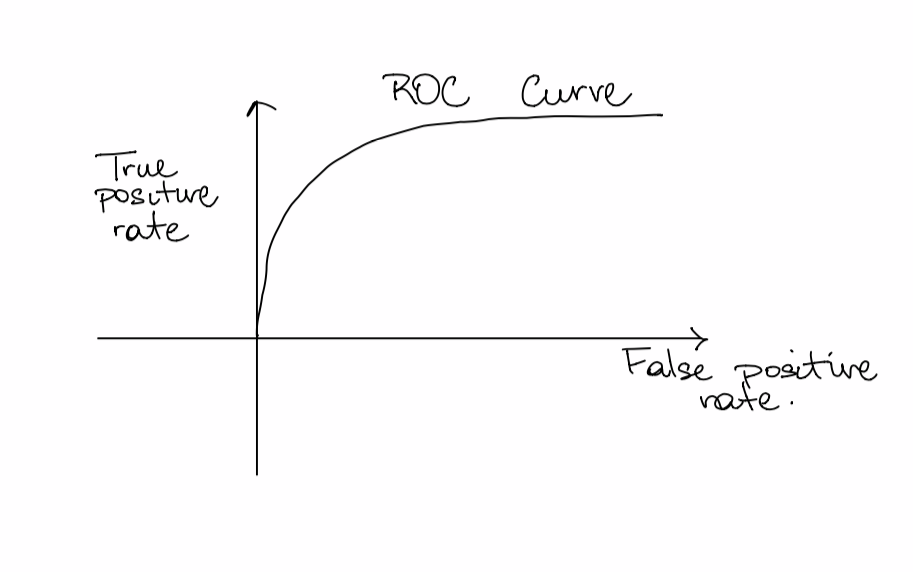 ROC Curve
True
positive
rate
False positive
rate.